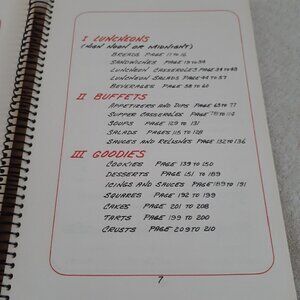 I LUNCHEONS
(HIGH NOON OR MIDNIGHT)
BREADS PAGE 11 TO 16
SANDWICHES PAGE 19 TO 34
LUNCHEON CASSEROLES PAGE 39 TO 43
LUNCHEON SALADS PAGE 44 TO 57
BEVERAGES PAGE 58 TO 60
II BUFFETS
APPETIZERS AND DIPS PAGE 63 TO 77
SUPPER CASSEROLES PAGE TO 110
SOUPS PAGE 129 TO 131
SALADS PAGES 115 TO 128
SAUCES AND RELISHES PAGE 132 TO 136
III GOODIES
COOKIES PAGE 139 TO 150
DESSERTS PAGE 151 TO 189
ICINGS AND SAUCES PAGE 189 TO 191
SQUARES PAGE 192 TO 199
CAKES PAGE 201 TO 208
TARTS PAGE 199 TO 200
CRUSTS PAGE 209 TO 210
7